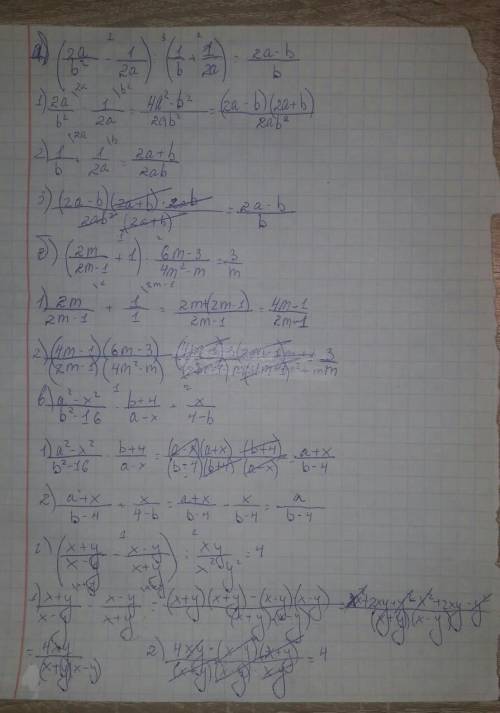 а) (2a/b² - 1/2a) : (1/b + 1/2a) = (2a-b)/b
1) 2a/b² - 1/2a = (4a²-b²)/2ab² = (2a-b)(2a+b)/2ab²
2) 1/b + 1/2a = (2a+b)/2ab
3) (2a-b)(2a+b)·2ab/2ab²·(2a+b) = (2a-b)/b
б) (2m/(2m-1) + 1) · (6m-3)/(4m²-m) = 3/m
1) 2m/(2m-1) + 1/1 = 2m+(2m-1)/(2m-1) = (4m-1)/(2m-1)
2) (4m-1)(6m-3)/(2m-1)(4m²-m) = 3/m
в) (a²-x²)/(b²-16) · (b+4)/(a-x) + x/(4-b)
1) (a²-x²)/(b²-16) · (b+4)/(a-x) = (a-x)(a+x)·(b+4)/(b-4)(b+4)·(a-x) = (a+x)/(b-4)
2) (a+x)/(b-4) + x/(4-b) = (a+x)/(b-4) - x/(b-4) = a/(b-4)
г) ((x+y)/(x-y) - (x-y)/(x+y)) : xy/(x²-y²) = 4
1) (x+y)/(x-y) - (x-y)/(x+y) = (x+y)(x+y)-(x-y)(x-y)/(x+y)(x-y) = x²+2xy+y²-x²+2xy-y²/(x+y)(x-y)
= 4xy/(x+y)(x-y) 2) 4xy·(x-y)(x+y)/(x+y)(x-y)·xy = 4